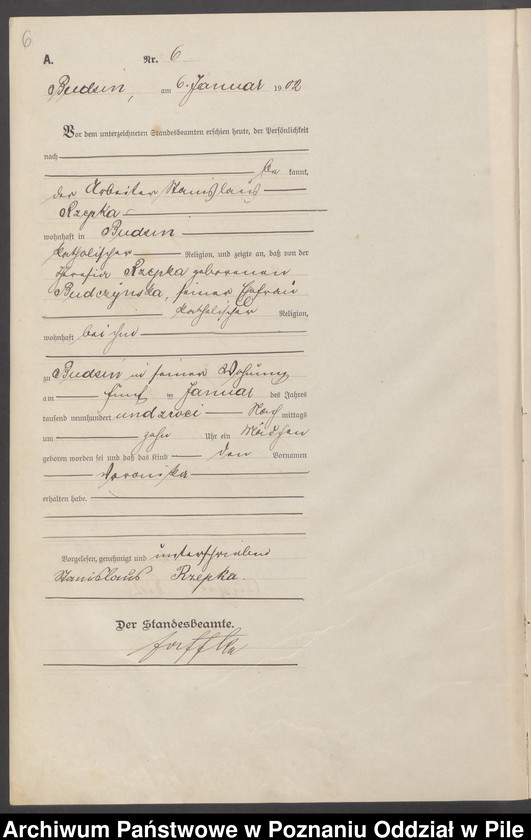 6
A. Nr. 6
Budsin, am 6. Januar 1902
Vor dem unterzeichneten Standesbeamten erschien heute, der Persönlichkeit
nach
be kannt,
der Arbeiter Stanislaus
Rzepka
wohnhaft in Budsin
katholischer Religion, und zeigte an, daß von der
Theresia Rzepka geborenen
Budczynska, seiner Ehefrau
katholischer Religion,
wohnhaft bei ihm
zu Budsin in seiner Wohnung
am fünf ten Januar des Jahres
tausend neunhundert und zwei Nach mittags
um zehn Uhr ein Mädchen
geboren worden sei und daß das Kind den Vornamen
Veronika
erhalten habe.
Vorgelesen, genehmigt und unterschrieben
Stanislaus Rzepka.
Der Standesbeamte.
Archiwum Państwowe w Poznaniu Oddział w Pile